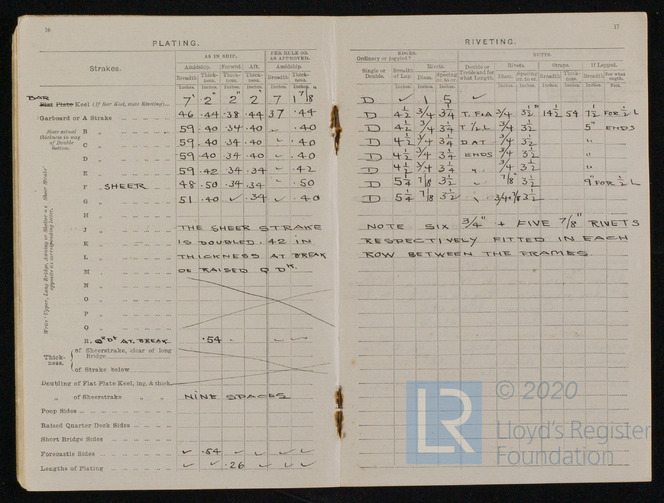 16
PLATING.
AS IN SHIP.
PER RULE OR AS APPROVED.
Strakes.
Amidship. Forward. Aft. Amidship.
Breadth. Thickness. Thickness. Thickness. Breadth. Thickness.
Inches. Inches. Inches. Inches. Inches. Inches.
BAR
Flat Plate Keel (If Bar Keel, state Riveting) 7" 2" 2" 2 7 1 7/8"
Garboard or A Strake 46 .44 .38 .44 37 .44
State actual thickness in way of Double bottom.
B 59 .40 .34 .40 ✓ .40
C 59 .40 .34 .40 ✓ .40
D 59 .40 .34 .40 ✓ .40
E 59 .42 .34 .34 ✓ .42
F SHEER 48 .50 .34 .34 .50
G 51 .40 ✓ .34 ✓ .40
H
J THE SHEER STRAKE
K IS DOUBLED .42 IN
L THICKNESS AT BREAK
M OF RAISED Q DK.
N
O
P
Q
R. Q"DK AT BREAK .54
Thickness. of Sheerstrake, clear of long Bridge
of Strake below
Doubling of Flat Plate Keel, lng. & thick.
„ of Sheerstrake „ „ NINE SPACES
Poop Sides
Raised Quarter Deck Sides
Short Bridge Sides
Forecastle Sides ✓ .54 ✓ ✓ ✓ ✓
Lengths of Plating ✓ ✓ .26 ✓ ✓ ✓
17
RIVETING.
EDGES. BUTTS.
Ordinary or joggled?
Single or Double. Breadth of Lap. Rivets. Double or Treble and for what Length. Rivets. Straps. If Lapped.
Diam. Spacing cr. to cr. Diam. Spacing cr. to cr. Breadth. Thickness. Breadth. For what Length.
Inches. Inches. Inches. Inches. Inches. Inches. Inches. Inches. Feet.
D ✓ 1 5 ✓
D 4 1/2 3/4 3 1/4 T. F & A 3/4 3 1/2" 14 1/2 54 7 1/2 FOR 1/2 L
D 4 1/2 3/4 3 1/4 3/4 3 1/2 5" ENDS
D 4 1/2 3/4 3 1/4 D AT 3/4 3 1/2 "
D 4 1/2 3/4 3 1/4 ENDS 3/4 3 1/2 "
D 4 1/2 3/4 3 1/4 " 3/4 3 1/2 "
D 5 1/4 7/8 3 1/2 " 7/8" 3 1/2 9" FOR 1/2 L
D 5 1/4 7/8 3 1/2 3 1/2 "
NOTE SIX 3/4" + FIVE 7/8" RIVETS
RESPECTIVELY FITTED IN EACH
ROW BETWEEN THE FRAMES
LR
© 2020
Lloyd's Register
Foundation